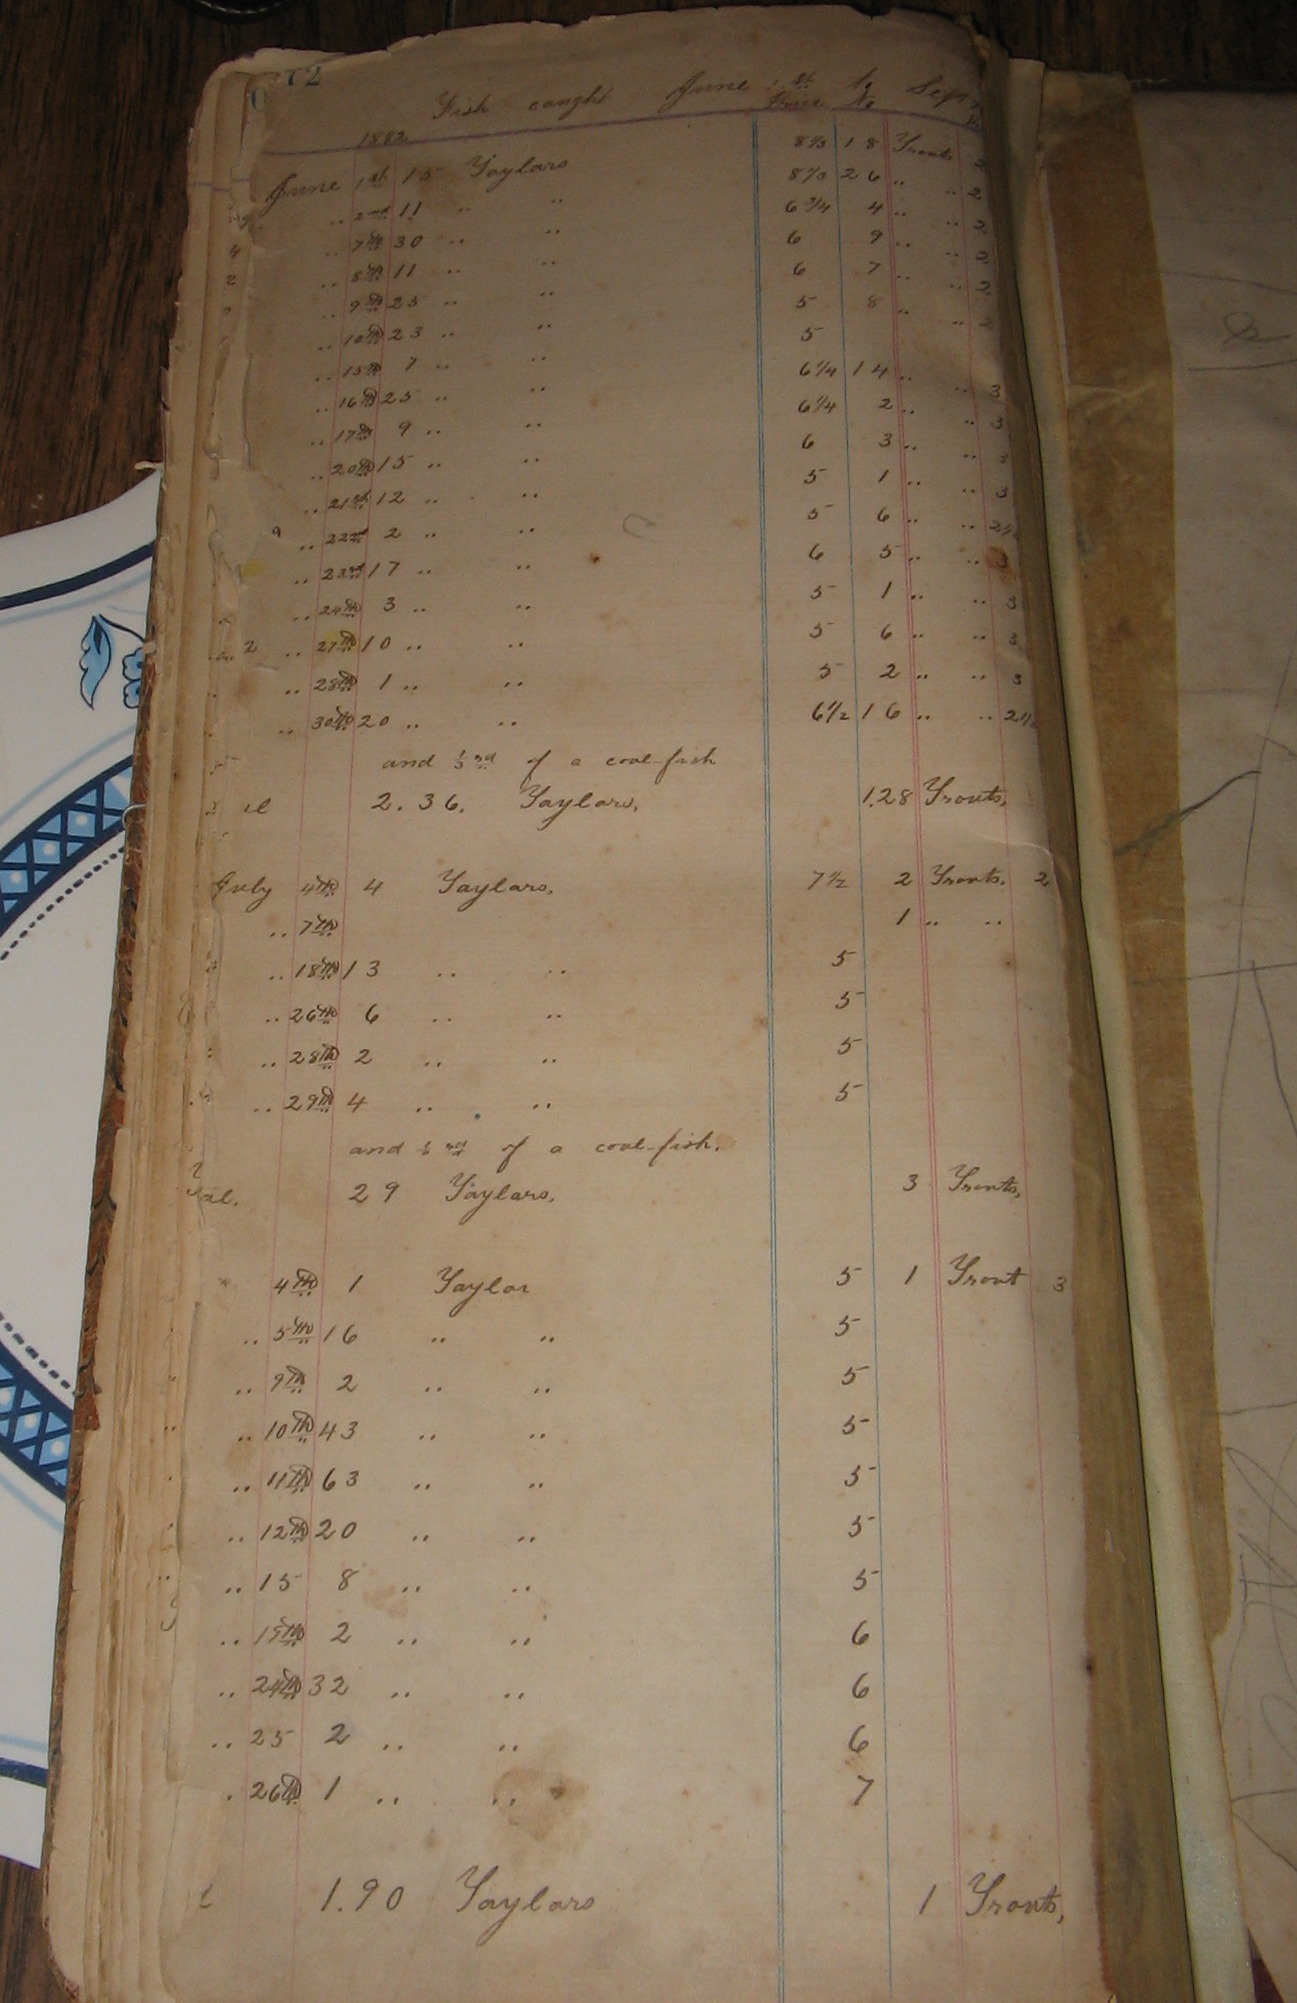 72
Fish caught June 1st to Sept
1882 Price No
June 1st 15 Taylors 8 1/3 18 Trouts 2
.. 2nd 11 .. .. 8 1/3 26 .. .. 2
.. 7th 30 .. .. 6 3/4 4 .. .. 2
.. 8th 11 .. .. 6 9 .. .. 2
.. 9th 25 .. .. 6 7 .. .. 2
.. 10th 23 .. .. 5 8 .. .. 2
.. 15th 7 .. .. 5
.. 16th 25 .. .. 6 1/4 14 .. .. 3
.. 17th 9 .. .. 6 1/4 2 .. .. 3
.. 20th 15 .. .. 6 3 .. .. 3
.. 21st 12 .. .. 5 1 .. .. 3
.. 22nd 2 .. .. 5 6 .. .. 2 1/2
.. 23rd 17 .. .. 6 5 .. .. 3
.. 24th 3 .. .. 5 1 .. .. 3
.. 27th 10 .. .. 5 6 .. .. 3
.. 28th 1 .. .. 5 2 .. .. 3
.. 30th 20 .. .. 6 1/2 16 .. .. 2 1/2
and 1/3rd of a coal-fish
2.36. Taylors, 1.28 Trouts,
July 4th 4 Taylars, 7 1/2 2 Trouts, 2
.. 7th 1 .. ..
.. 18th 13 .. .. 5
.. 26th 6 .. .. 5
.. 28th 2 .. .. 5
.. 29th 4 .. .. 5
and of a coal-fish,
al. 29 Taylars, 3 Trouts,
4th 1 Taylor 5 1 Trout 3
.. 5th 16 .. .. 5
.. 9th 2 .. .. 5
.. 10th 43 .. .. 5
.. 11th 63 .. .. 5
.. 12th 20 .. .. 5
.. 15 8 .. .. 5
.. 19th 2 .. .. 6
.. 24th 32 .. .. 6
.. 25 2 .. .. 6
. 26th 1 .. .. 7
l 1.90 Taylors 1 Trouts,